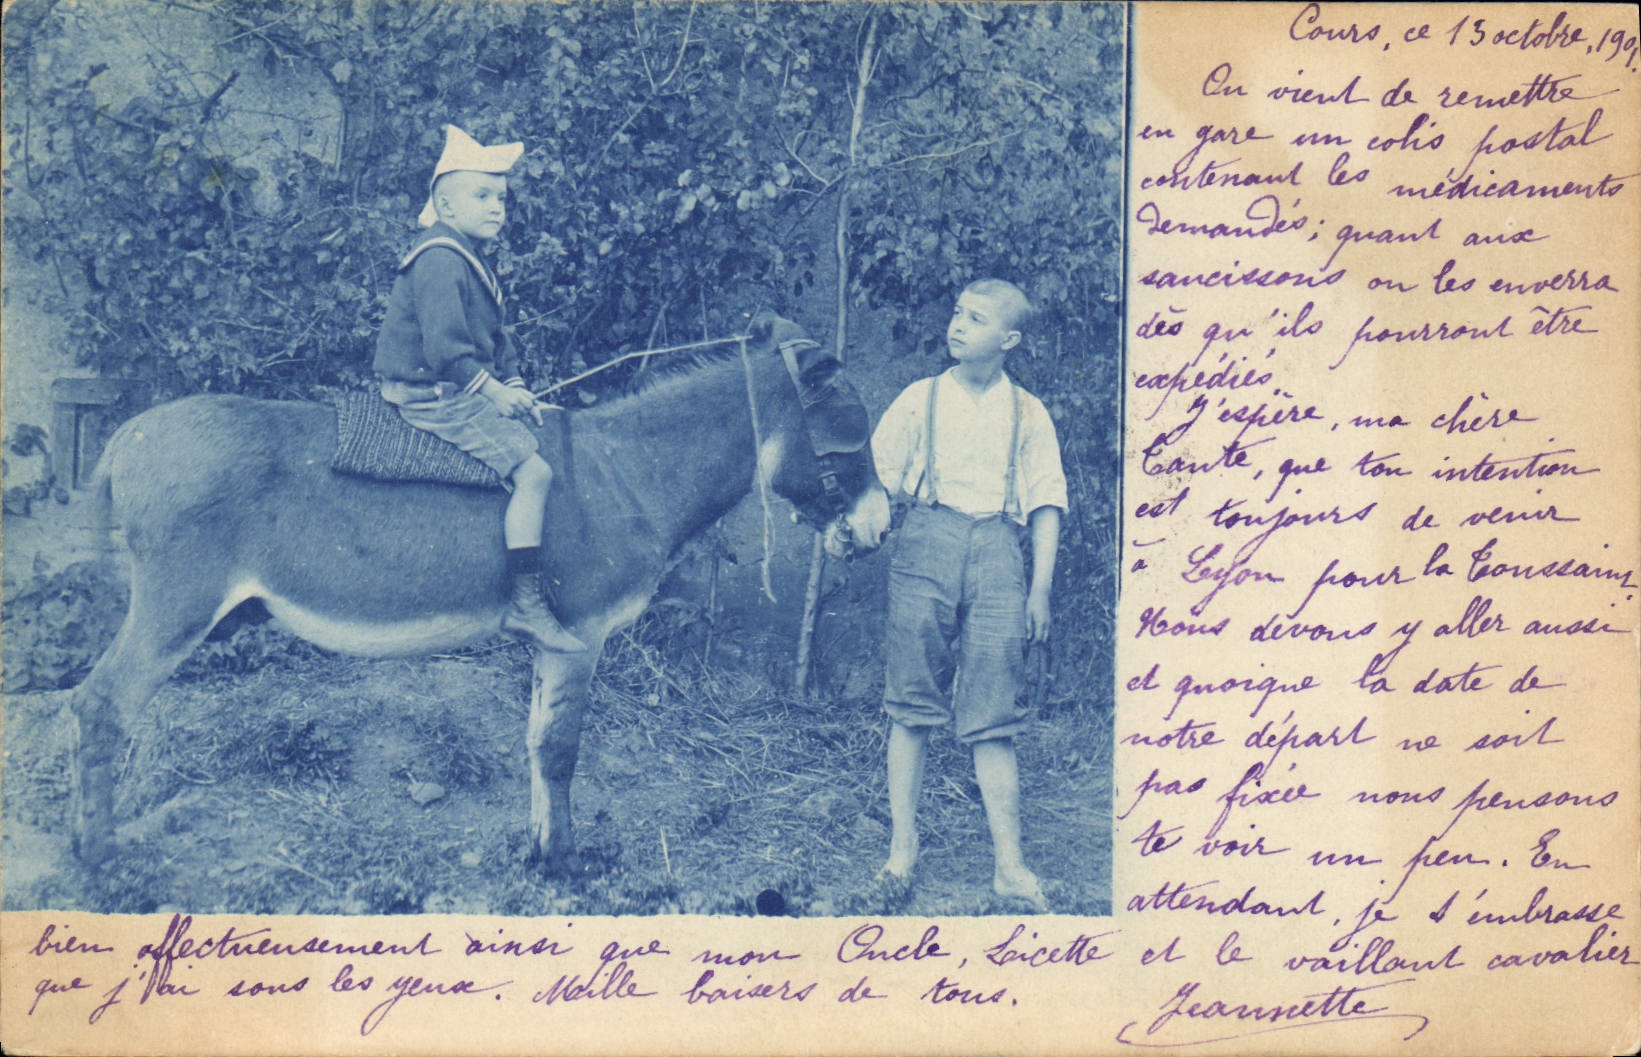 Cours, ce 13 octobre, 1901.
On vient de remettre
en gare un colis postal
contenant les médicaments
demandés; quant aux
saucissons on les enverra
dès qu'ils pourront être
expédiés.
J'espère, ma chère
Tante, que ton intention
est toujours de venir
à Lyon pour la Toussaint.
Nous devons y aller aussi
et quoique la date de
notre départ ne soit
pas fixée nous pensons
te voir un peu. En
attendant, je t'embrasse
bien affectueusement ainsi que mon Oncle, Licette et le vaillant cavalier
que j'ai sous les yeux. Mille baisers de tous.
Jeannette